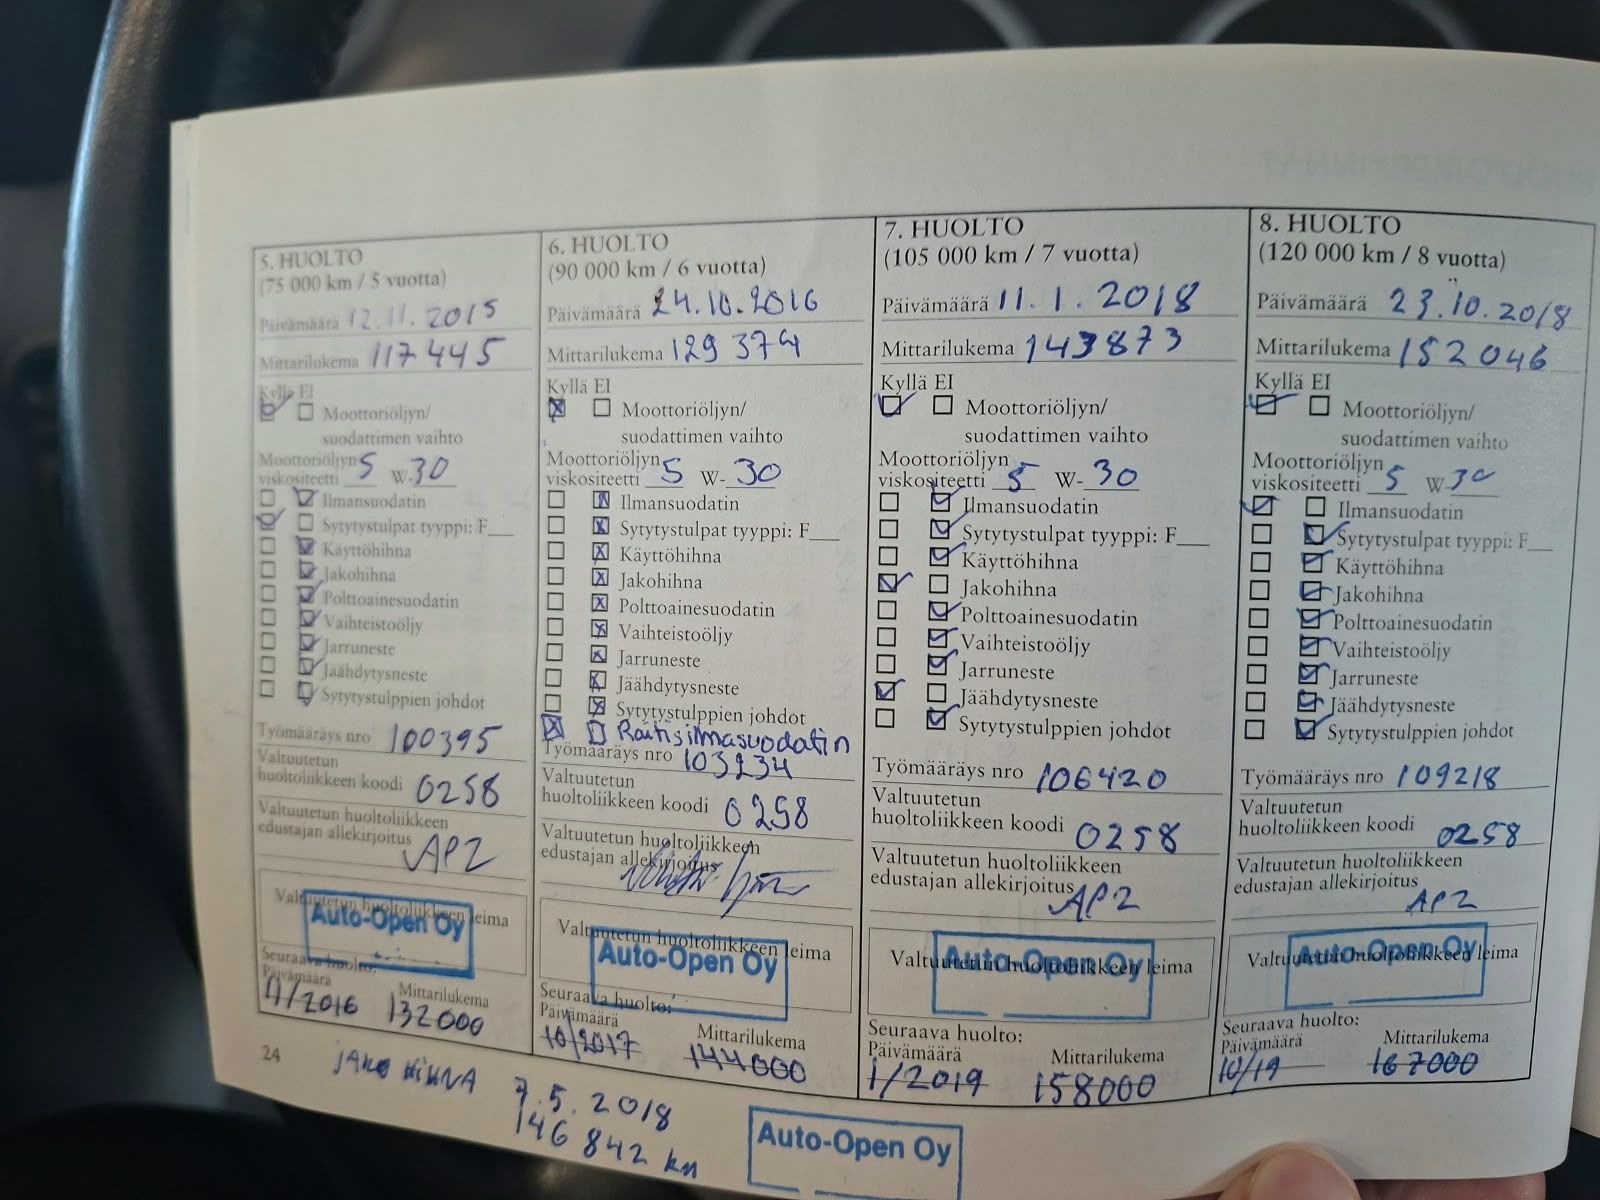 5. HUOLTO
(75 000 km / 5 vuotta)
Päivämäärä 12.11.2015
Mittarilukema 117 445
Kyllä EI
Moottoriöljyn/
suodattimen vaihto
Moottoriöljyn
viskositeetti 5 W-30
Ilmansuodatin
Sytytystulpat tyyppi: F___
Käyttöhihna
Jakohihna
Polttoainesuodatin
Vaihteistoöljy
Jarruneste
Jäähdytysneste
Sytytystulppien johdot
Työmääräys nro 100395
Valtuutetun
huoltoliikkeen koodi 0258
Valtuutetun huoltoliikkeen
edustajan allekirjoitus
APZ
Valtuutetun huoltoliikkeen leima
Auto-Open Oy
Seuraava huolto:
Päivämäärä Mittarilukema
11/2016 132000
24
6. HUOLTO
(90 000 km / 6 vuotta)
Päivämäärä 24.10.2016
Mittarilukema 129 374
Kyllä EI
Moottoriöljyn/
suodattimen vaihto
Moottoriöljyn
viskositeetti 5 W-30
Ilmansuodatin
Sytytystulpat tyyppi: F___
Käyttöhihna
Jakohihna
Polttoainesuodatin
Vaihteistoöljy
Jarruneste
Jäähdytysneste
Sytytystulppien johdot
Raitisilmasuodatin
Työmääräys nro 103234
Valtuutetun
huoltoliikkeen koodi 0258
Valtuutetun huoltoliikkeen
edustajan allekirjoitus
Valtuutetun huoltoliikkeen leima
Auto-Open Oy
Seuraava huolto:
Päivämäärä Mittarilukema
10/2017 144000
7. HUOLTO
(105 000 km / 7 vuotta)
Päivämäärä 11.1.2018
Mittarilukema 143873
Kyllä EI
Moottoriöljyn/
suodattimen vaihto
Moottoriöljyn
viskositeetti 5 W-30
Ilmansuodatin
Sytytystulpat tyyppi: F___
Käyttöhihna
Jakohihna
Polttoainesuodatin
Vaihteistoöljy
Jarruneste
Jäähdytysneste
Sytytystulppien johdot
Työmääräys nro 106420
Valtuutetun
huoltoliikkeen koodi 0258
Valtuutetun huoltoliikkeen
edustajan allekirjoitus
APZ
Valtuutetun huoltoliikkeen leima
Auto-Open Oy
Seuraava huolto:
Päivämäärä Mittarilukema
1/2019 158000
8. HUOLTO
(120 000 km / 8 vuotta)
Päivämäärä 23.10.2018
Mittarilukema 152046
Kyllä EI
Moottoriöljyn/
suodattimen vaihto
Moottoriöljyn
viskositeetti 5 W-30
Ilmansuodatin
Sytytystulpat tyyppi: F___
Käyttöhihna
Jakohihna
Polttoainesuodatin
Vaihteistoöljy
Jarruneste
Jäähdytysneste
Sytytystulppien johdot
Työmääräys nro 109218
Valtuutetun
huoltoliikkeen koodi 0258
Valtuutetun huoltoliikkeen
edustajan allekirjoitus
APZ
Valtuutetun huoltoliikkeen leima
Auto-Open Oy
Seuraava huolto:
Päivämäärä Mittarilukema
10/19 167000
JAKO HIHNA 7.5.2018
146 842 km
Auto-Open Oy